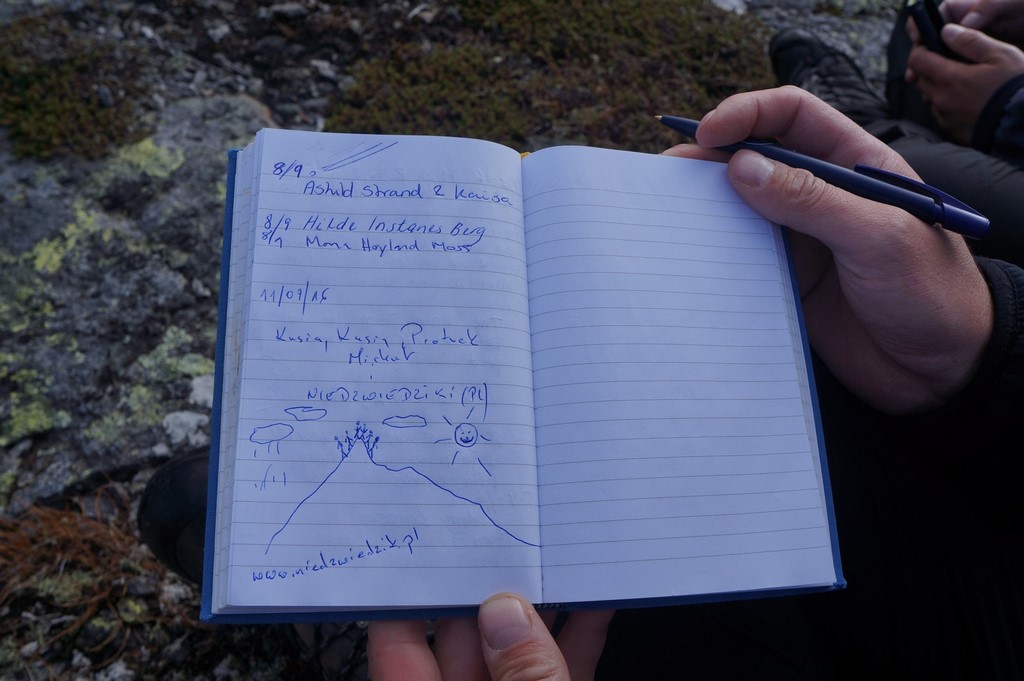 8/9.
Astrid Strand & Kaisa
8/9 Hilde Instanes Berg
8/9 Mona Høyland Moss
11/09/16
Kasia, Kasia, Piotrek
Michał
NIEDZWIEDZIKI (PL)
www.niedzwiedzik.pl